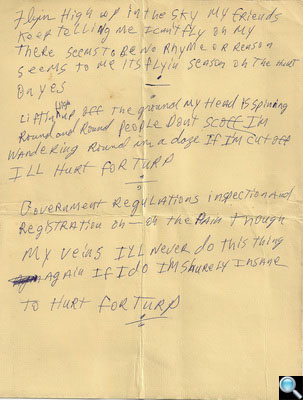 Flyin High up in the sky my friends
keep telling me I cant fly oh my
There seems to be no Rhyme or Reason
seems to me its flyin season oh the hurt
oh yes
Lifting up off the ground my Head is spining
Round and Round People Dont scoff Im
WANdering Round in a daze If Im cut off
ILL Hurt for TURP
Government Regulations inspection And
Registration oh — oh the Pain Though
My veins I'LL Never do this thing
Again If I do Im Shurely Insane
To Hurt for TURP